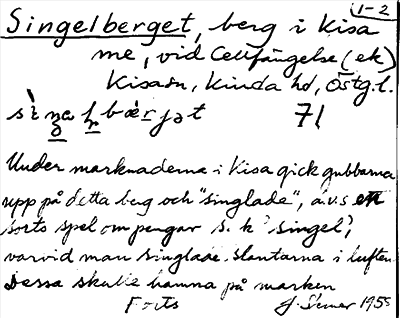 1-2
Singelberget, berg i Kisa
me, vid Cellfängelse (ek)
Kisasn, Kinda hd, Östg.l.
71
Under marknaderna i Kisa gick gubbarna
upp på detta berg och "singlade", d.v.s en
sorts spel om pengar s.k? singel?,
varvid man singlade slantarna i luften.
Dessa skulle hamna på marken
Forts
J. 1955